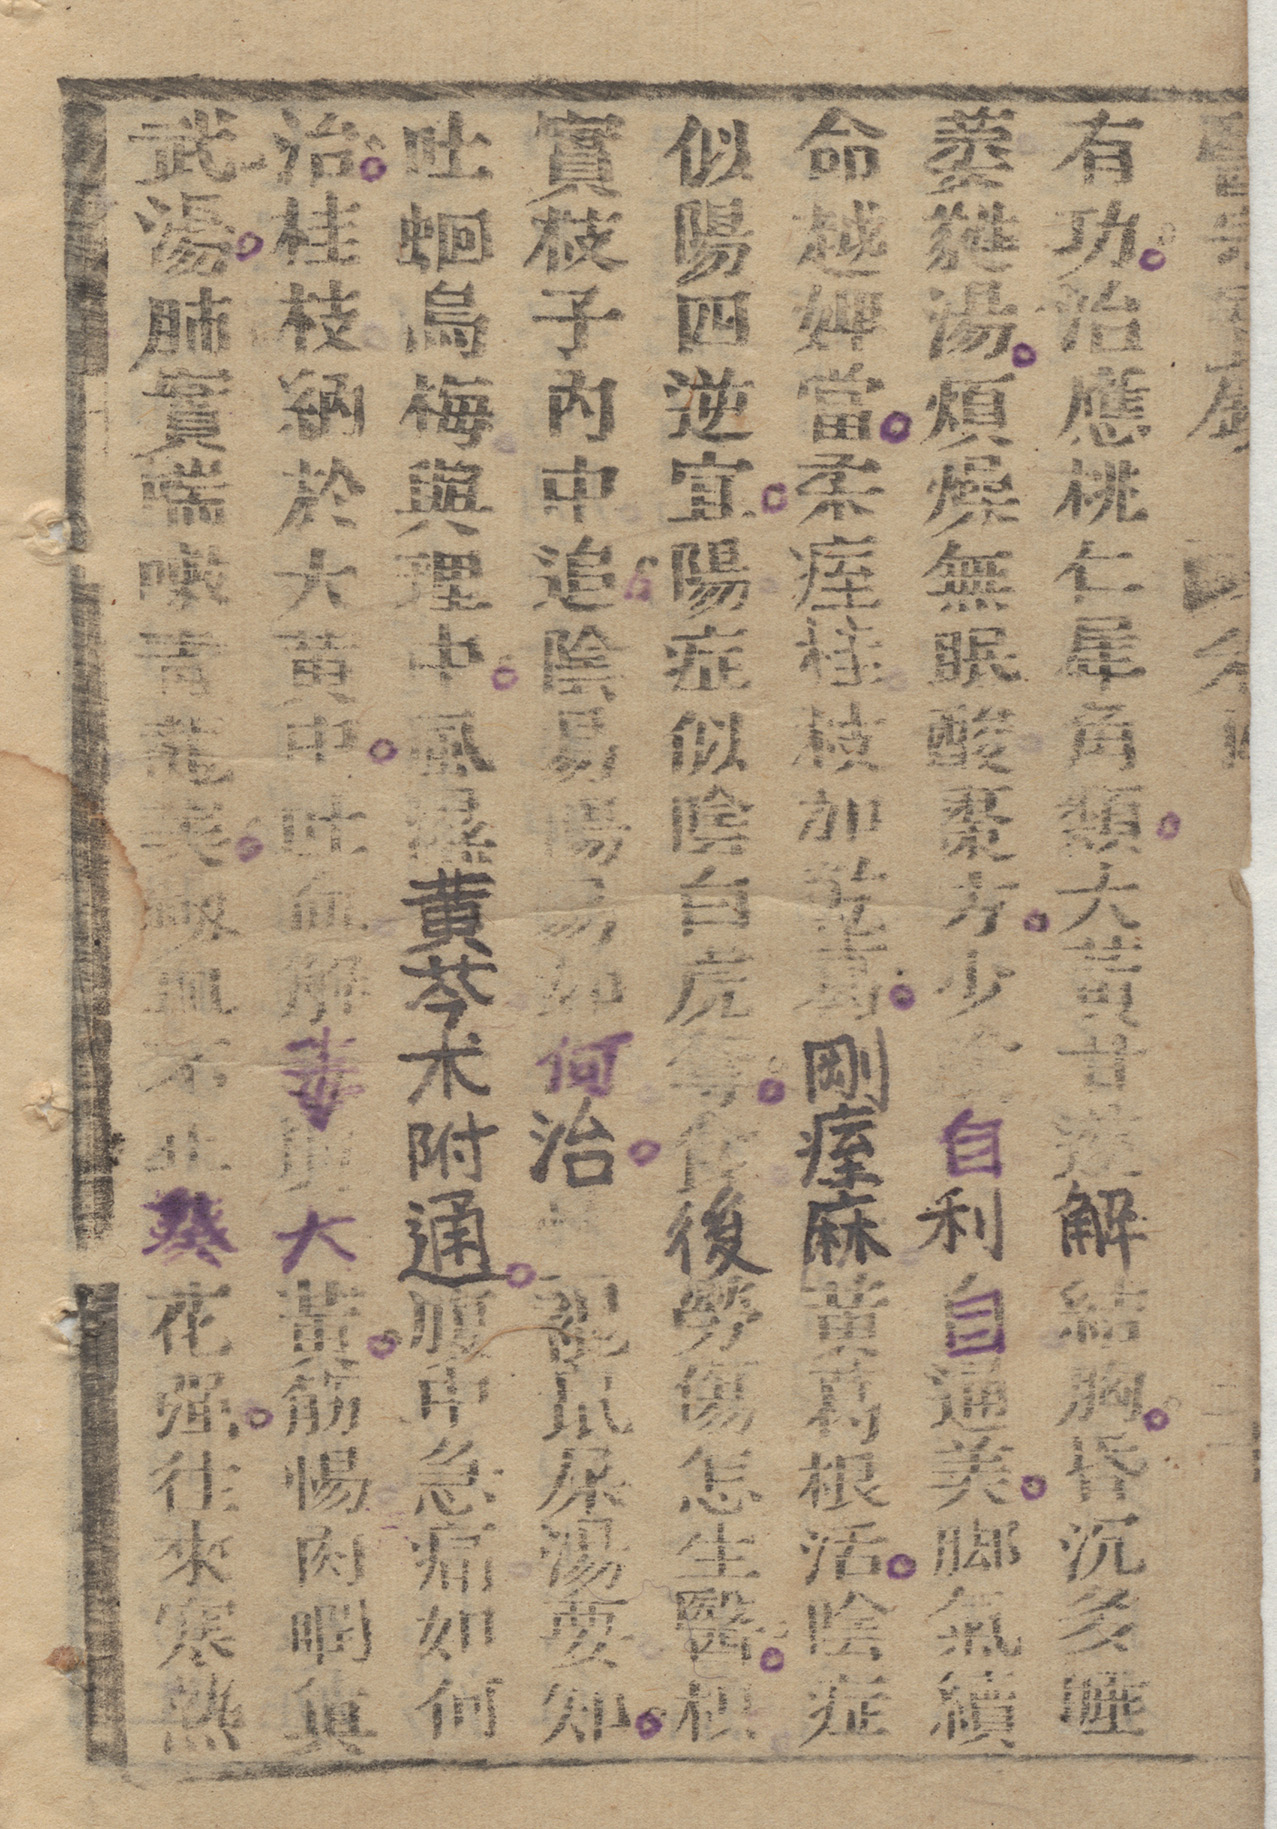 有功治應桃仁犀角類大黃甘遂解結胸昏沉多睡
葳蕤湯煩燥無眠酸棗方少陰自利自通美脚氣續
命越婢當柔痓桂枝加乾葛剛痓麻黃莿根活陰症
似陽四逆宜陽症似陰白虎每後勞傷怎生醫枳
實枝子內中追陰易陽易如何治豭鼠屎湯要知
吐蛔烏梅與理中風濕黃芩术附通腹中急痛如何
治桂枝納於大黃中吐血解毒大黃筋惕肉瞤真
武湯肺實喘嗽青龍美衂血不止葵花强往來寒熱